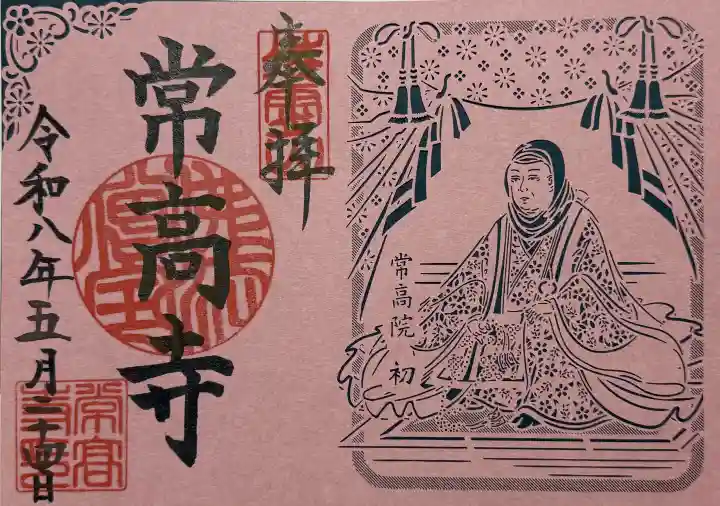 奉拝
常高寺
令和八年五月二十四日
常高院、初